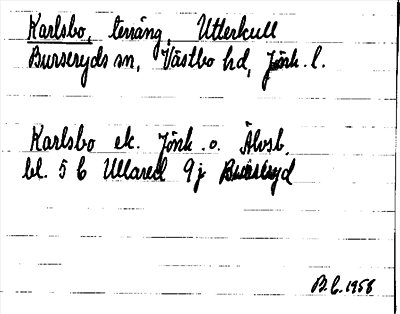 Karlsbo, terräng, Utterkull
Burseryds sn, Västbo hd, Jönk. l.
Karlsbo ek. Jönk. o. Älvsb.
bl. 5 C Ullared 9 j Burseryd
B.C. 1958